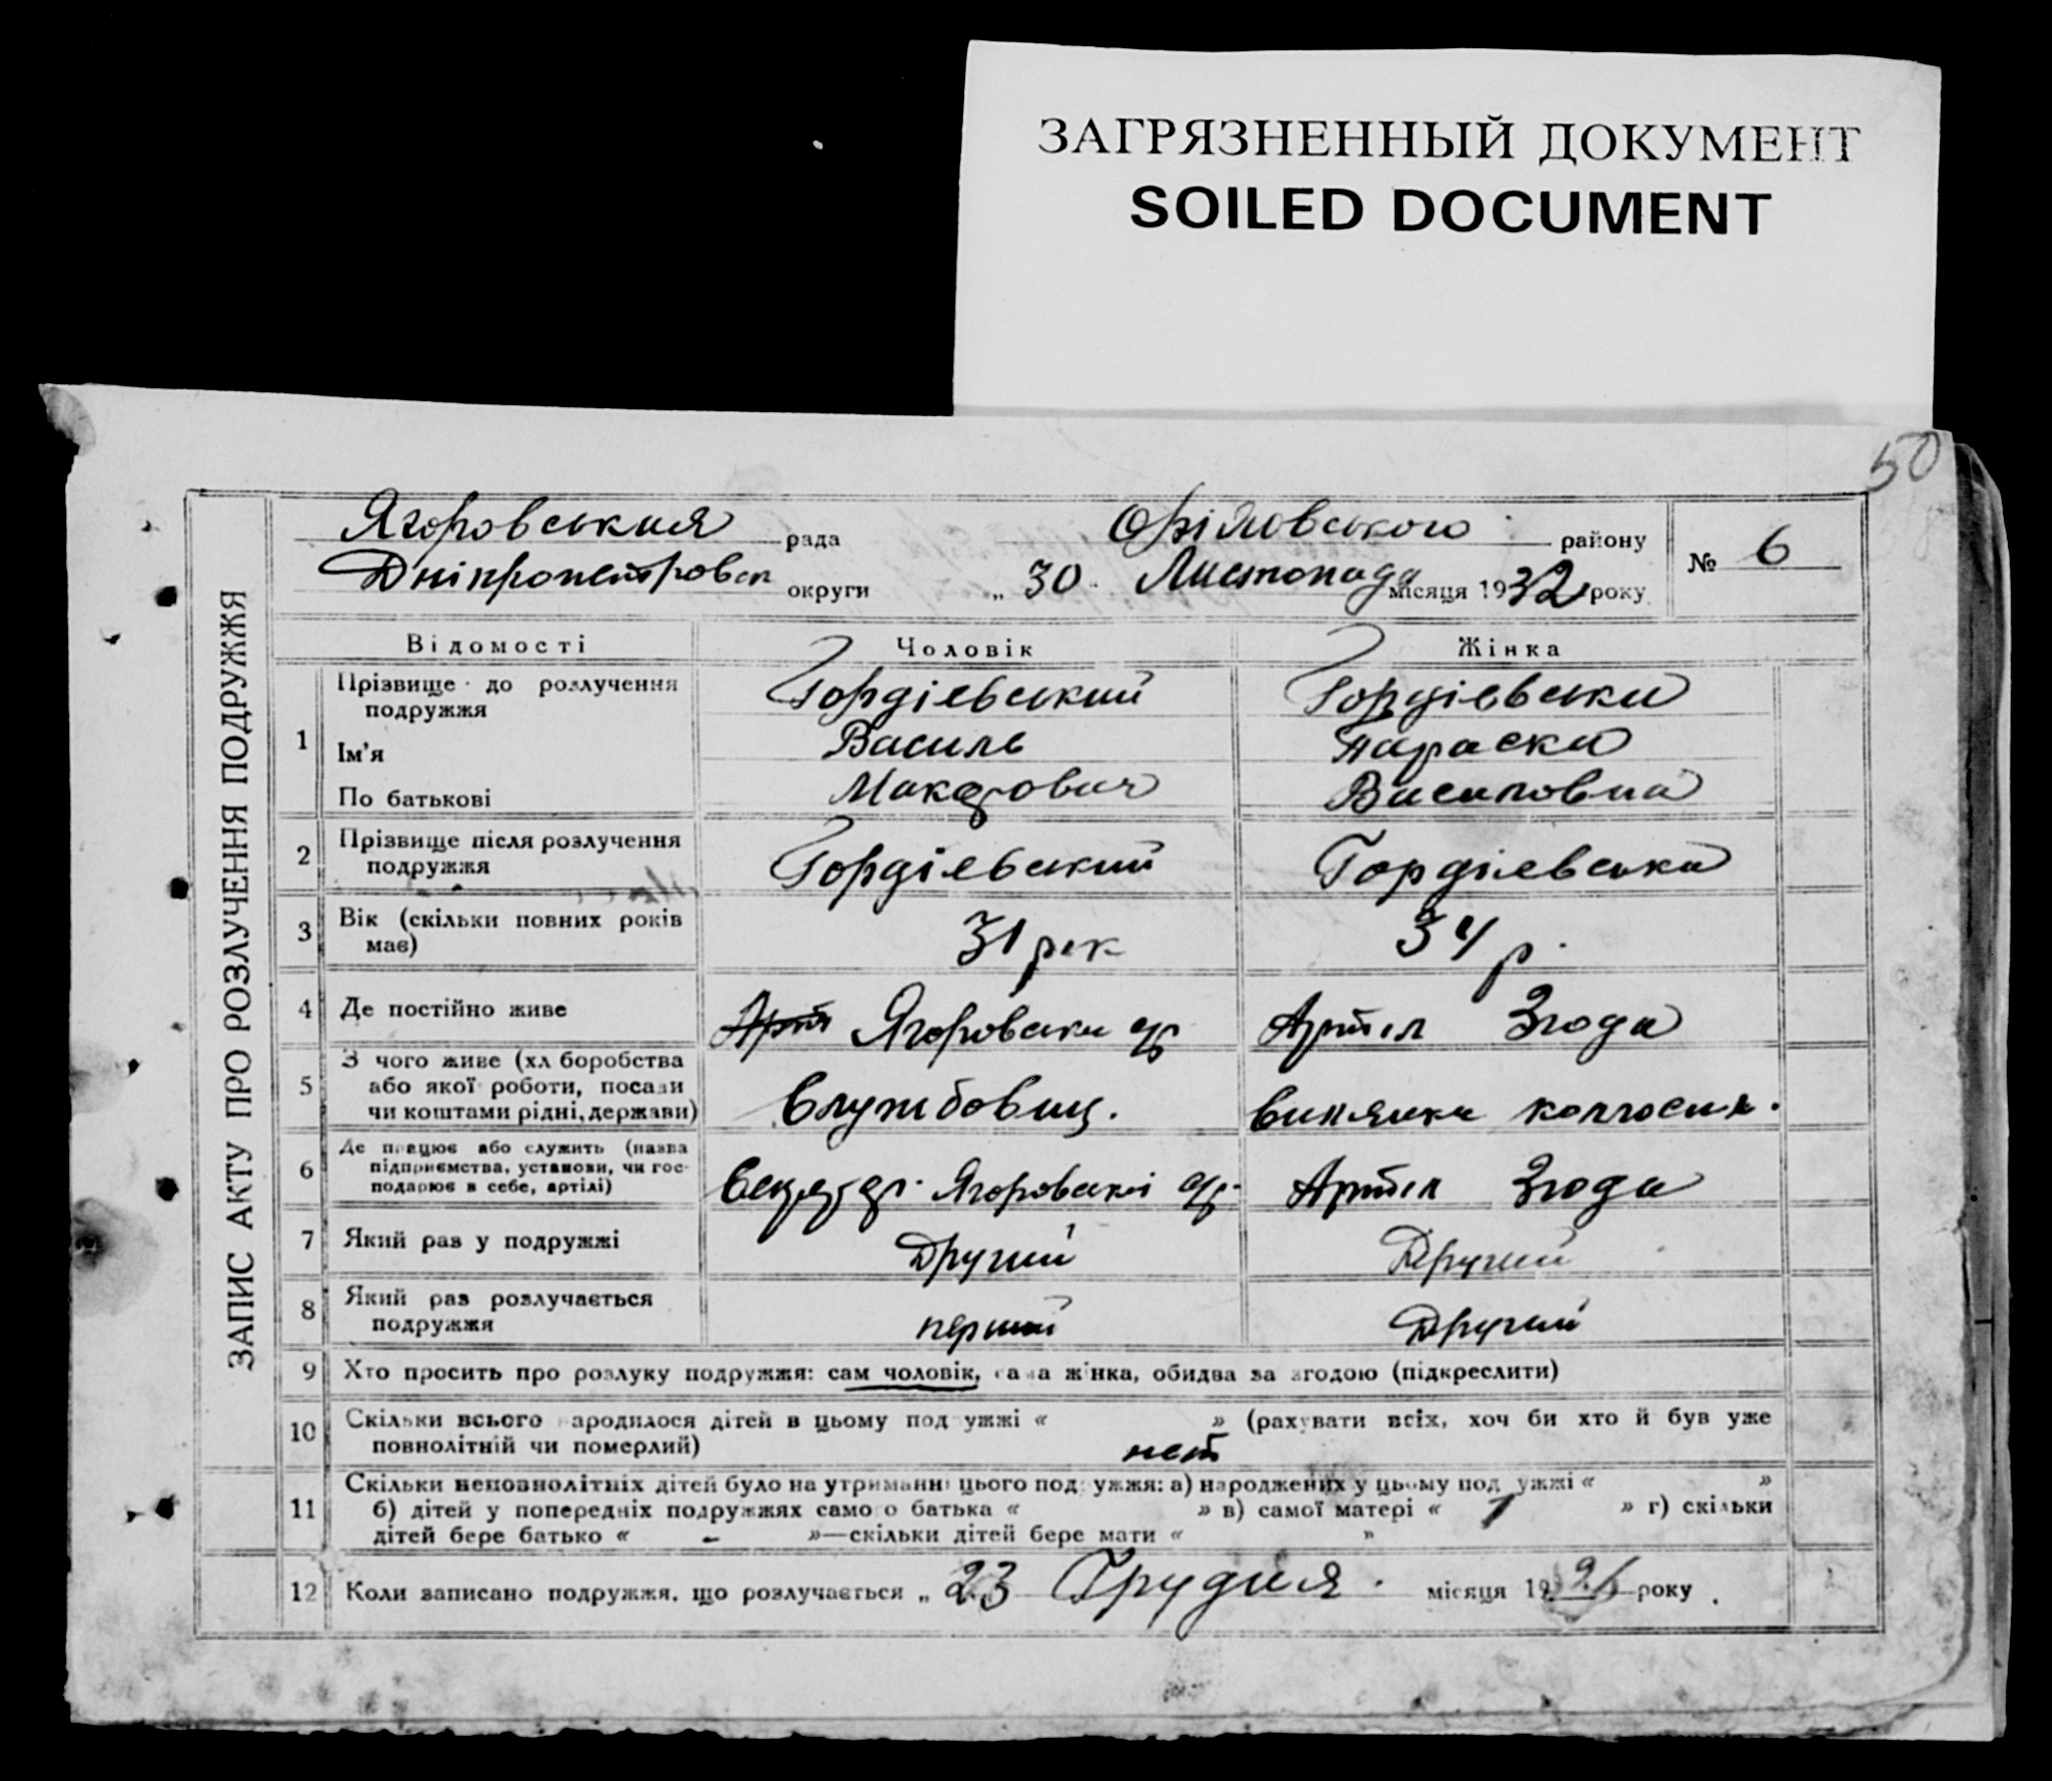 ЗАГРЯЗНЕННЫЙ ДОКУМЕНТ
SOILED DOCUMENT
50
ЗАПИС АКТУ ПРО РОЗЛУЧЕННЯ ПОДРУЖЖЯ
Ягоровськая рада района району № 6
Дніпропетровск округи „ 30 " Листопада місяця 1932 року
Відомості Чоловік Жінка
1 Прізвище до розлучення подружжя Гордіевський Гордіевська
Ім'я Василь Параска
По батькові Василовна
2 Прізвище після розлучення подружжя Гордіевський Гордіевська
3 Вік (скільки повних років має) 31 рік 34 р.
4 Де постійно живе Ягоровська Артіл Згода
5 З чого живе (хліборобства або якої роботи, посади чи коштами рідні, держави) Службовец.
6 Де працює або служить (назва підприємства, установи, чи господарює в себе, артілі) Ягоровськоі Артіл Згода
7 Який раз у подружжі Другий Другий
8 Який раз розлучається подружжя перший Другий
9 Хто просить про розлуку подружжя: сам чоловік, сама жінка, обидва за згодою (підкреслити)
10 Скільки всього народилося дітей в цьому подружжі « » (рахувати всіх, хоч би хто й був уже
повнолітній чи померлий) нет
11 Скільки неповнолітніх дітей було на утриманні цього подружжя: а) народжених у цьому подружжі « »
б) дітей у попередніх подружжях самого батька « » в) самої матері « 1 » г) скільки
дітей бере батько « - »—скільки дітей бере мати « »
12 Коли записано подружжя, що розлучається „ 23 Грудня місяця 19 року